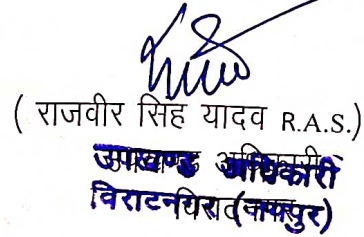 ( राजवीर सिंह यादव R.A.S.)
उपखण्ड अधिकारी
विराटनगर (जयपुर)